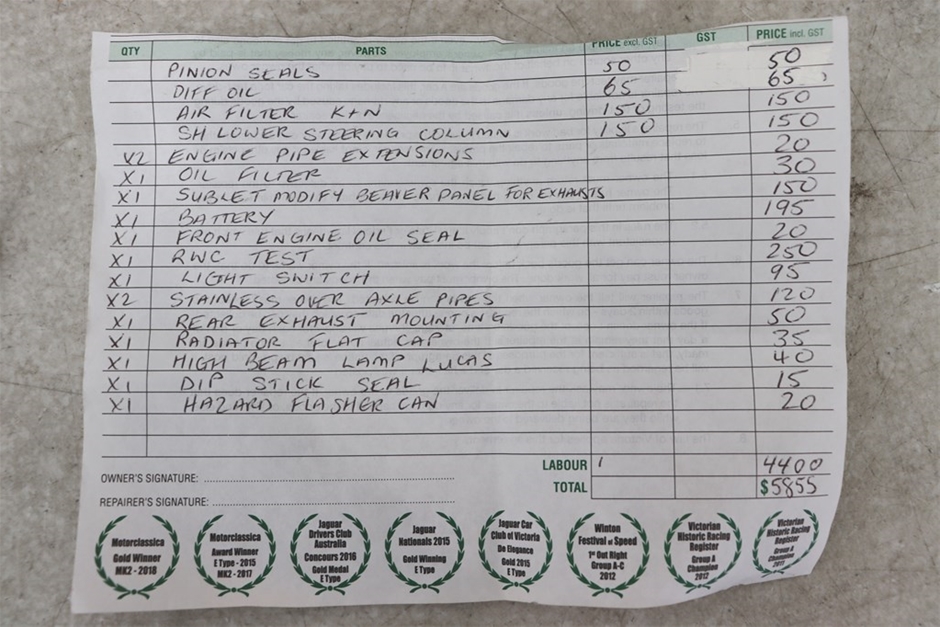 QTY PARTS PRICE excl. GST GST PRICE incl. GST
PINION SEALS 50 50
DIFF OIL 65 65
AIR FILTER K+N 150 150
SH LOWER STEERING COLUMN 150 150
X2 ENGINE PIPE EXTENSIONS 20
X1 OIL FILTER 30
X1 SUBLET MODIFY BEAVER PANEL FOR EXHAUSTS 150
X1 BATTERY 195
X1 FRONT ENGINE OIL SEAL 20
X1 RWC TEST 250
X1 LIGHT SWITCH 95
X2 STAINLESS OVER AXLE PIPES 120
X1 REAR EXHAUST MOUNTING 50
X1 RADIATOR FLAT CAP 35
X1 HIGH BEAM LAMP LUCAS 40
X1 DIP STICK SEAL 15
X1 HAZARD FLASHER CAN 20
LABOUR 4400
OWNER'S SIGNATURE:
TOTAL $5855
REPAIRER'S SIGNATURE:
Motorclassica
Gold Winner
MK2 - 2018
Motorclassica
Award Winner
E Type - 2015
MK2 - 2017
Jaguar
Drivers Club
Australia
Concours 2016
Gold Medal
E Type
Jaguar
Nationals 2015
Gold Winning
E Type
Jaguar Car
Club of Victoria
De Elegance
Gold 2015
E Type
Winton
Festival of Speed
1st Out Right
Group A-C
2012
Victorian
Historic Racing
Register
Group A
Champion
2012
Victorian
Historic Racing
Register
Group A
Champion
2011